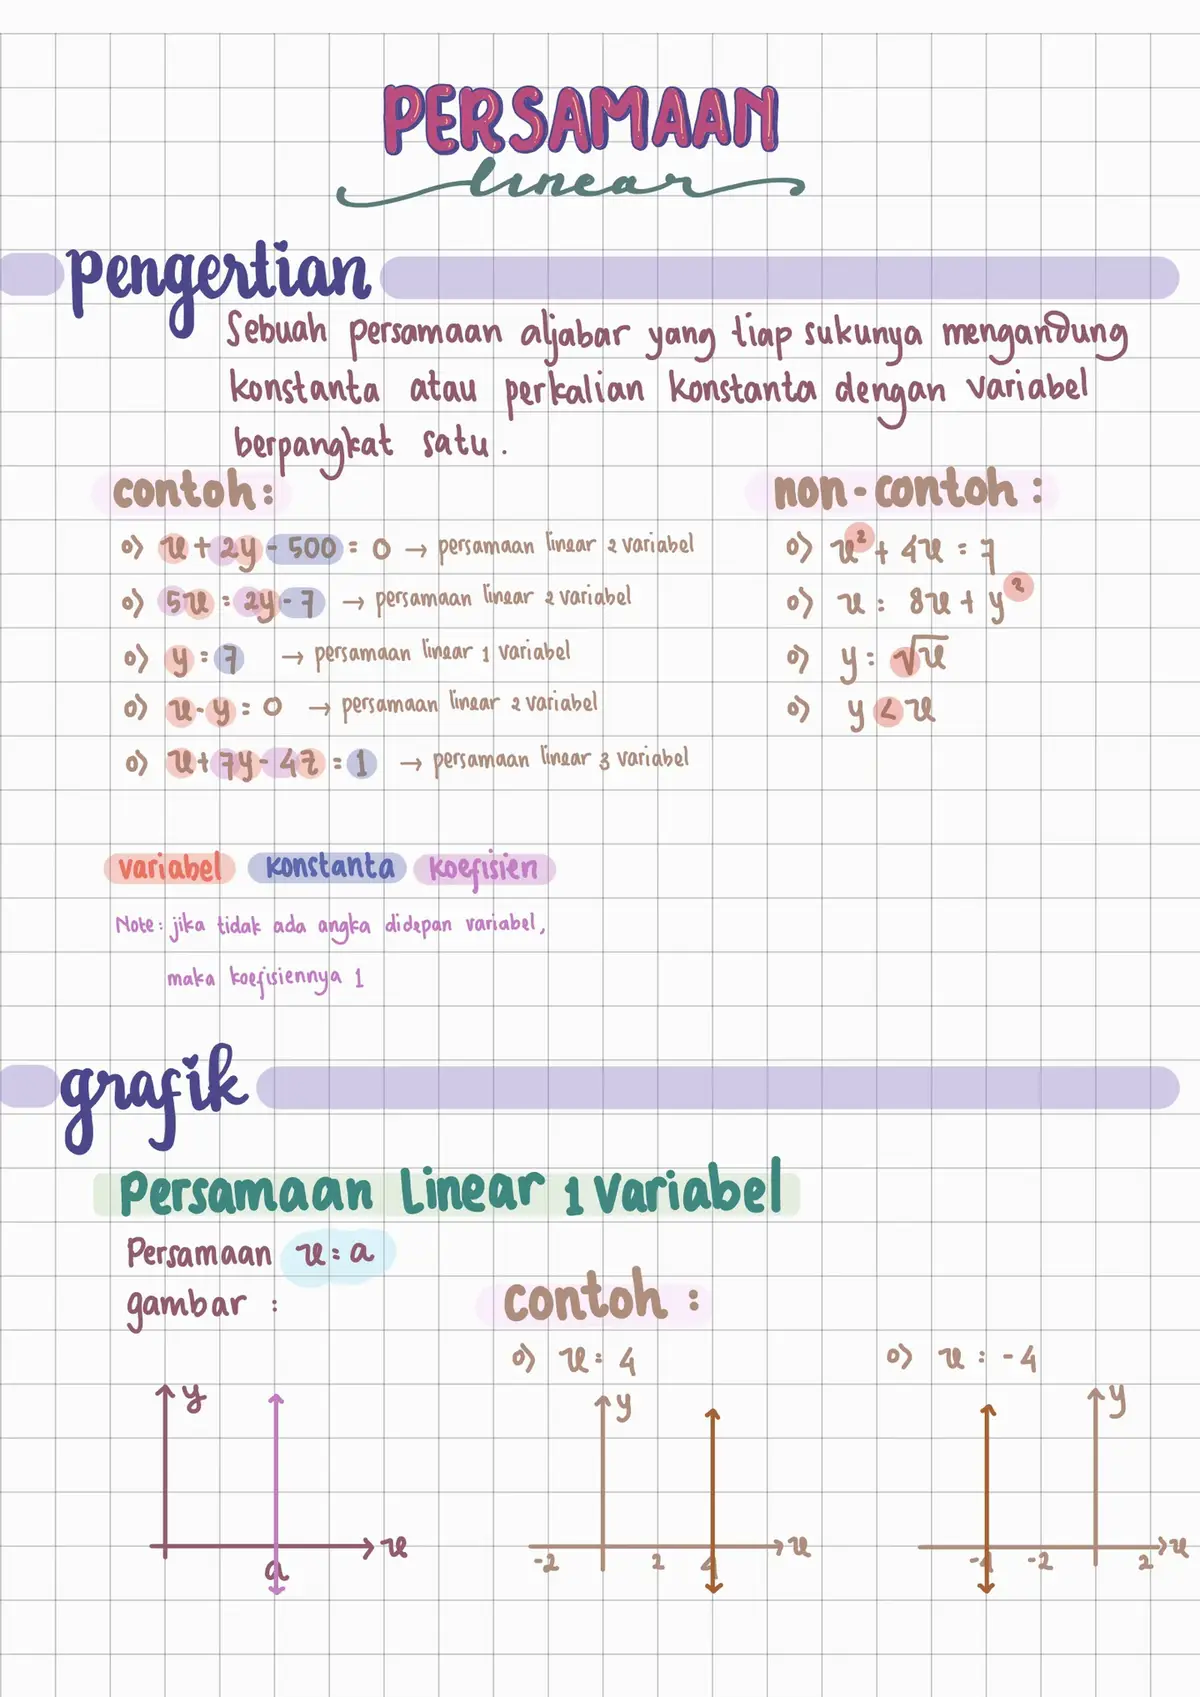 PERSAMAAN
linear
pengertian
Sebuah persamaan aljabar yang tiap sukunya mengandung
konstanta atau perkalian konstanta dengan variabel
berpangkat satu.
contoh:
o> x + 2y - 500 = 0 → persamaan linear 2 variabel
o> 5x = 2y - 7 → persamaan linear 2 variabel
o> y = 7 → persamaan linear 1 variabel
o> x - y = 0 → persamaan linear 2 variabel
o> x + 7y - 4z = 1 → persamaan linear 3 variabel
non-contoh:
o> x² + 4x = 7
o> x = 8x + y²
o> y = √x
o> y < x
variabel konstanta koefisien
Note: jika tidak ada angka didepan variabel,
maka koefisiennya 1
grafik
Persamaan Linear 1 Variabel
Persamaan x = a
gambar :
contoh :
o> x = 4
o> x = -4
y
a
x
y
-2 2 4
x
y
-4 -2 2
x